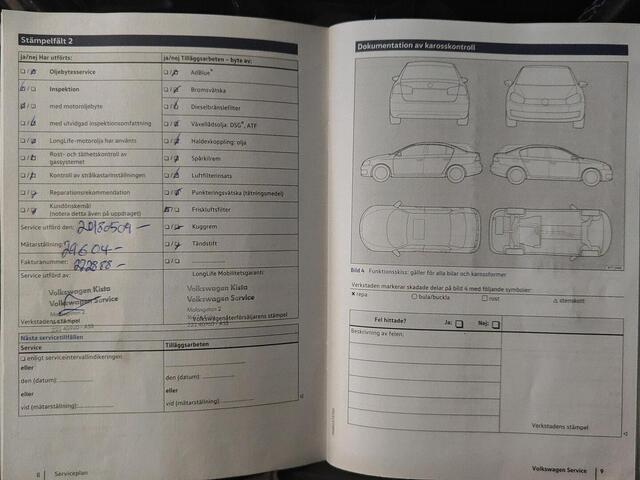 Stämpelfält 2
ja/nej Har utförts:
ja/nej Tilläggsarbeten – byte av:
Oljebytesservice
AdBlue®
Inspektion
Bromsvätska
med motoroljebyte
Dieselbränslefilter
med utvidgad inspektionsomfattning
Växellådsolja: DSG®, ATF
LongLife-motorolja har använts
Haldexkoppling: olja
Rost- och täthetskontroll av
gassystemet
Spärkilrem
Kontroll av strålkastarinställningen
Luftfilterinsats
Reparationsrekommendation
Punkteringsvätska (tätningsmedel)
Kundönskemål
(notera detta även på uppdraget)
Friskluftsfilter
Service utförd den: 20180509 –
Kuggrem
Mätarställning: 29604 –
Tändstift
Fakturanummer: 222888 –
Service utförd av:
LongLife Mobilitetsgaranti:
Volkswagen Kista
Volkswagen Service
Volkswagen Kista
Volkswagen Service
Verkstadens stämpel
Volkswagenåterförsäljarens stämpel
Nästa servicetillfällen
Service
Tilläggsarbeten
enligt serviceintervallindikeringen
eller
den (datum):
den (datum):
eller
eller
vid (mätarställning):
vid (mätarställning):
8 Serviceplan
Dokumentation av karosskontroll
Bild 4 Funktionsskiss: gäller för alla bilar och karossformer
Verkstaden markerar skadade delar på bild 4 med följande symboler:
× repa ○ bula/buckla □ rost △ stenskott
Fel hittade? Ja: Nej:
Beskrivning av felen:
Verkstadens stämpel
Volkswagen Service 9